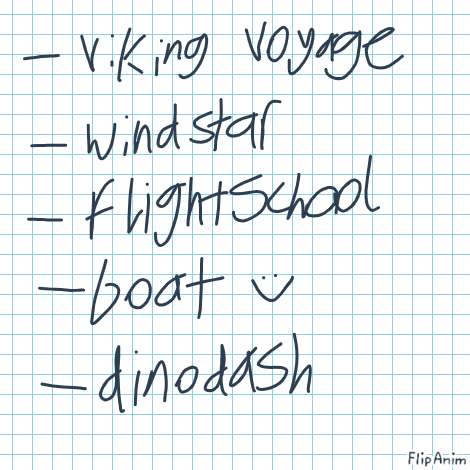 - viking voyage
- windstar
- flightschool
- boat ü
- dinodash
FlipAnim